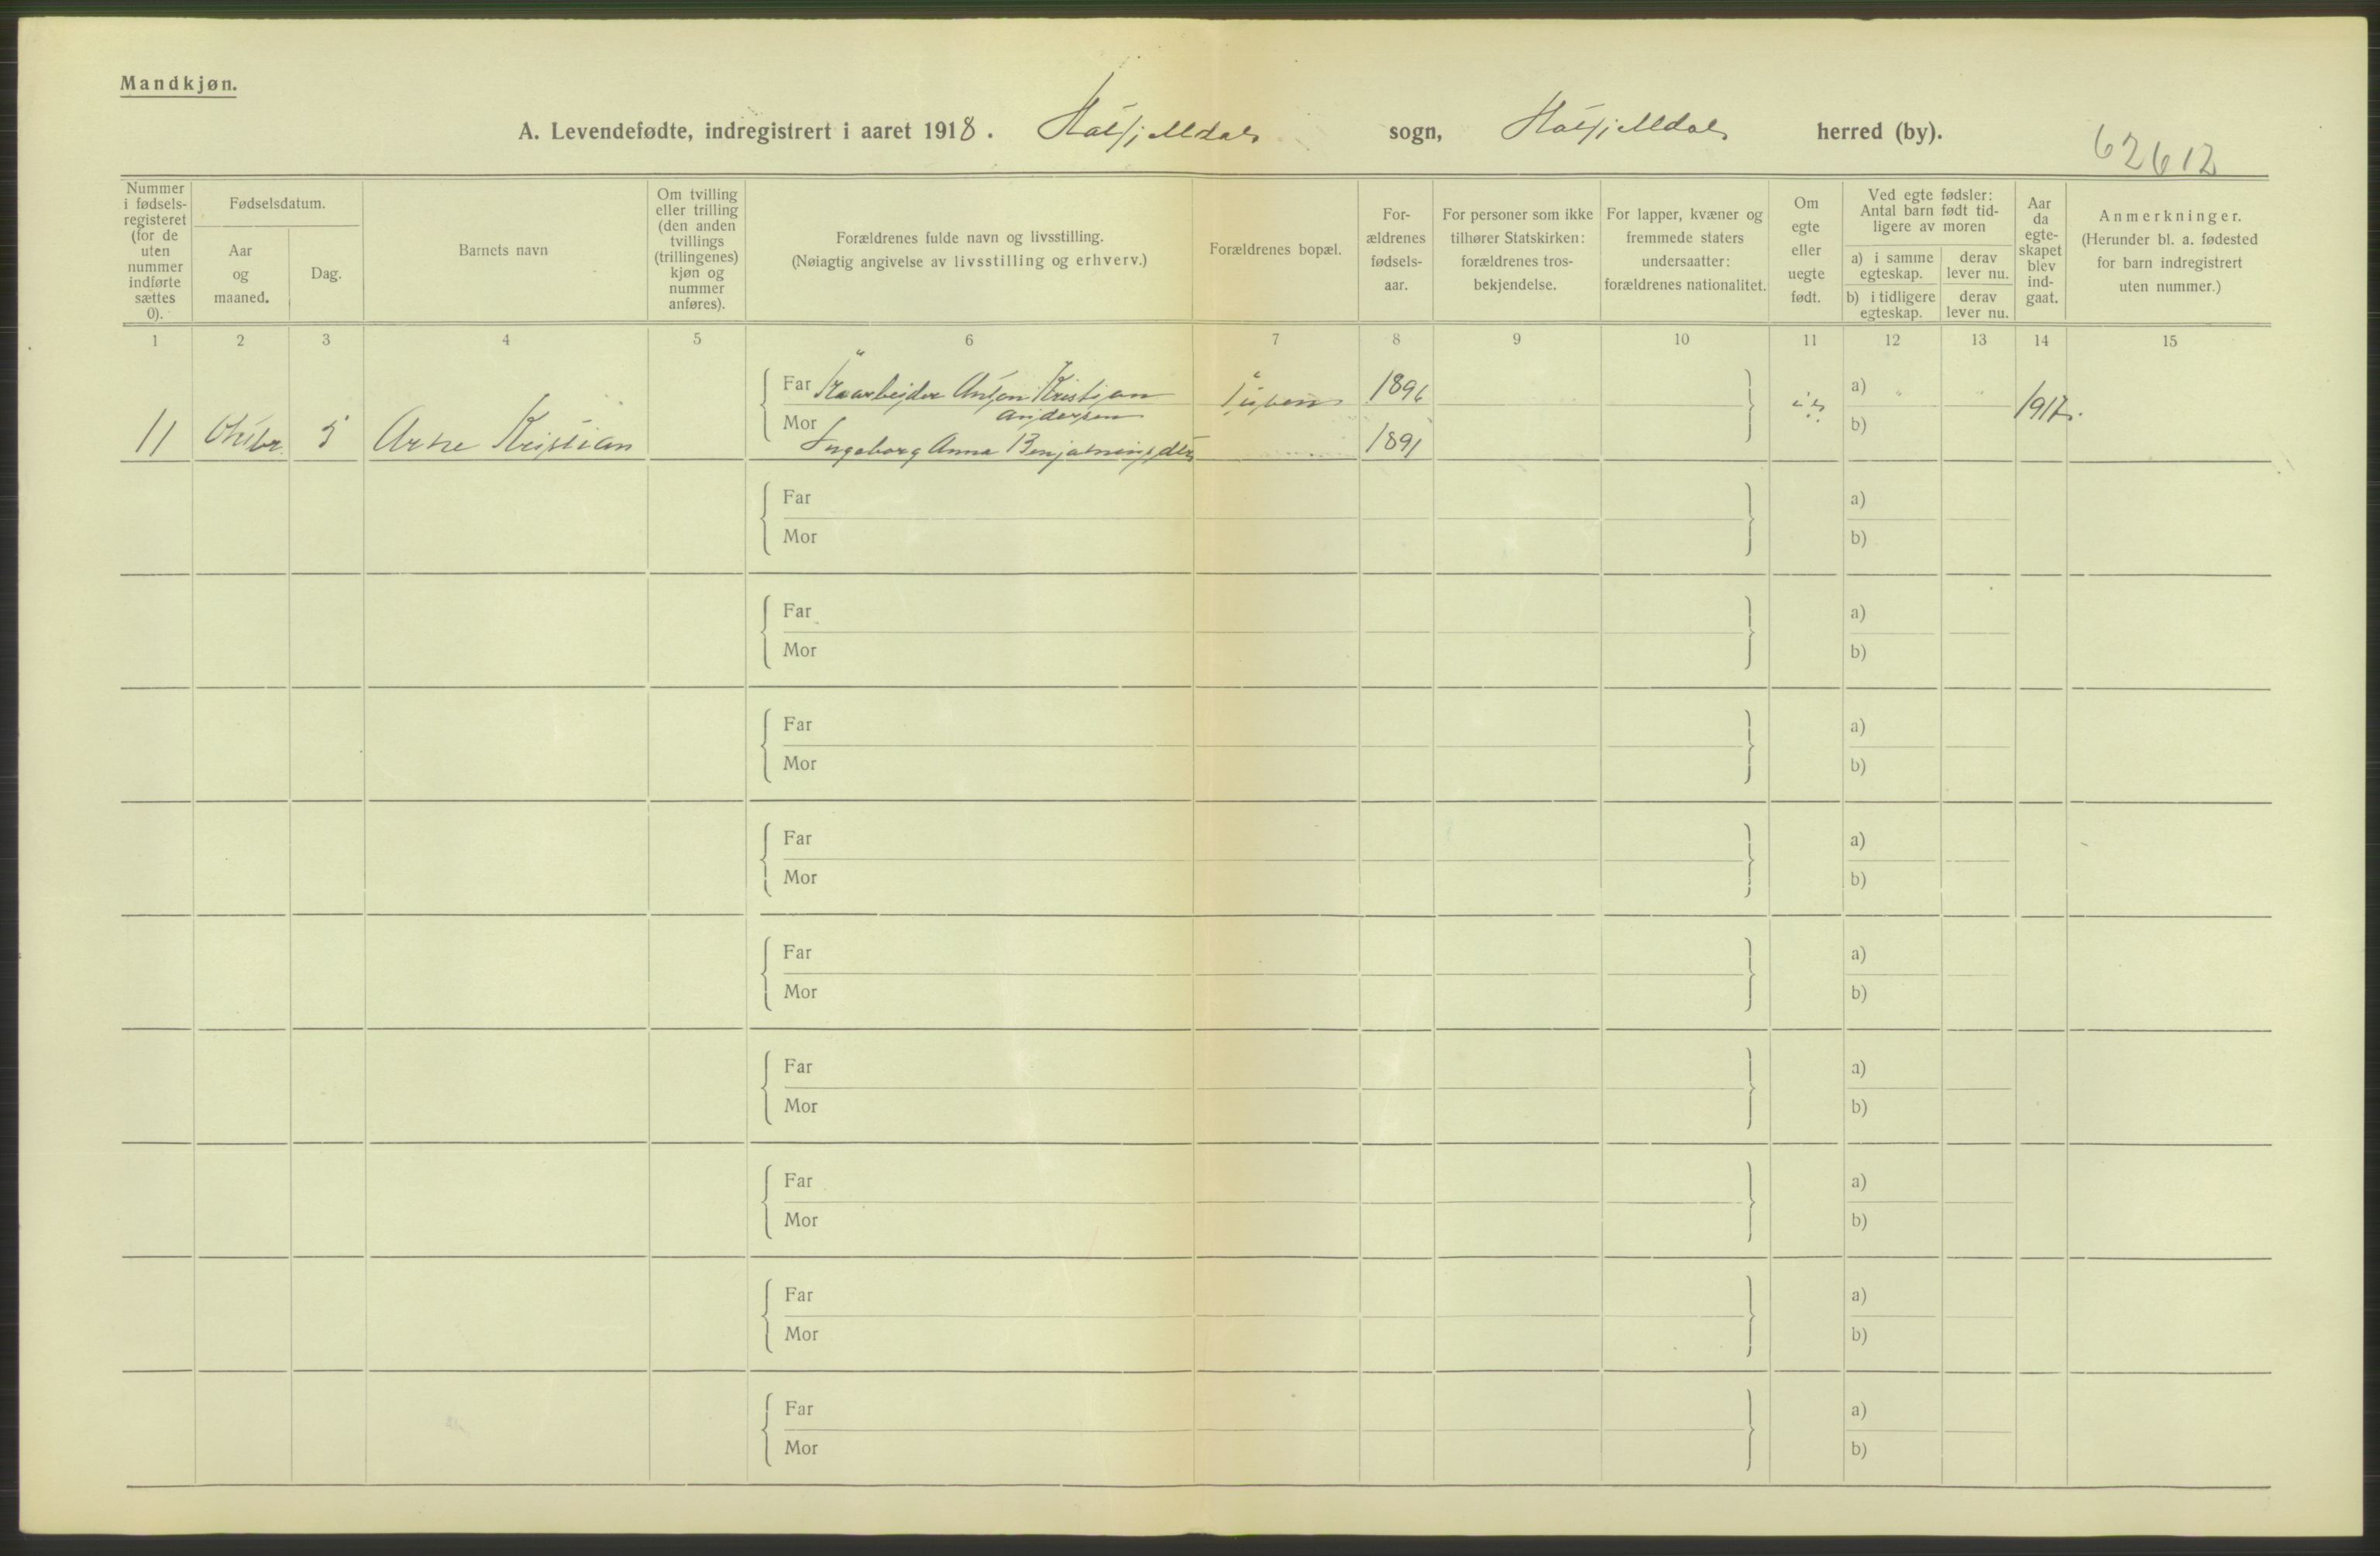 Mandkjøn.
A. Levendefødte, indregistrert i aaret 1918. Hatfjelldal sogn, Hatfjelldal herred (by).
62612
Nummer i fødsels-registeret (for de uten nummer indførte sættes 0).
Fødselsdatum.
Aar og maaned.
Dag.
Barnets navn
Om tvilling eller trilling (den anden tvillings (trillingenes) kjøn og nummer anføres).
Forældrenes fulde navn og livsstilling.
(Nøiagtig angivelse av livsstilling og erhverv.)
Forældrenes bopæl.
For-ældrenes fødsels-aar.
For personer som ikke tilhører Statskirken: forældrenes tros-bekjendelse.
For lapper, kvæner og fremmede staters undersaatter: forældrenes nationalitet.
Om egte eller uegte født.
Ved egte fødsler: Antal barn født tid-ligere av moren
a) i samme egteskap.
derav lever nu.
b) i tidligere egteskap.
derav lever nu.
Aar da egte-skapet blev ind-gaat.
Anmerkninger.
(Herunder bl. a. fødested for barn indregistrert uten nummer.)
1 2 3 4 5 6 7 8 9 10 11 12 13 14 15
Far Anton Kristian 1896 a) "
Andersen
11 Oktbr. 5 Arne Kristian Mor Ingeborg Anna Benjaminsdtr 1891 b) 1917.
Far a)
Mor b)
Far a)
Mor b)
Far a)
Mor b)
Far a)
Mor b)
Far a)
Mor b)
Far a)
Mor b)
Far a)
Mor b)
Far a)
Mor b)
Far a)
Mor b)